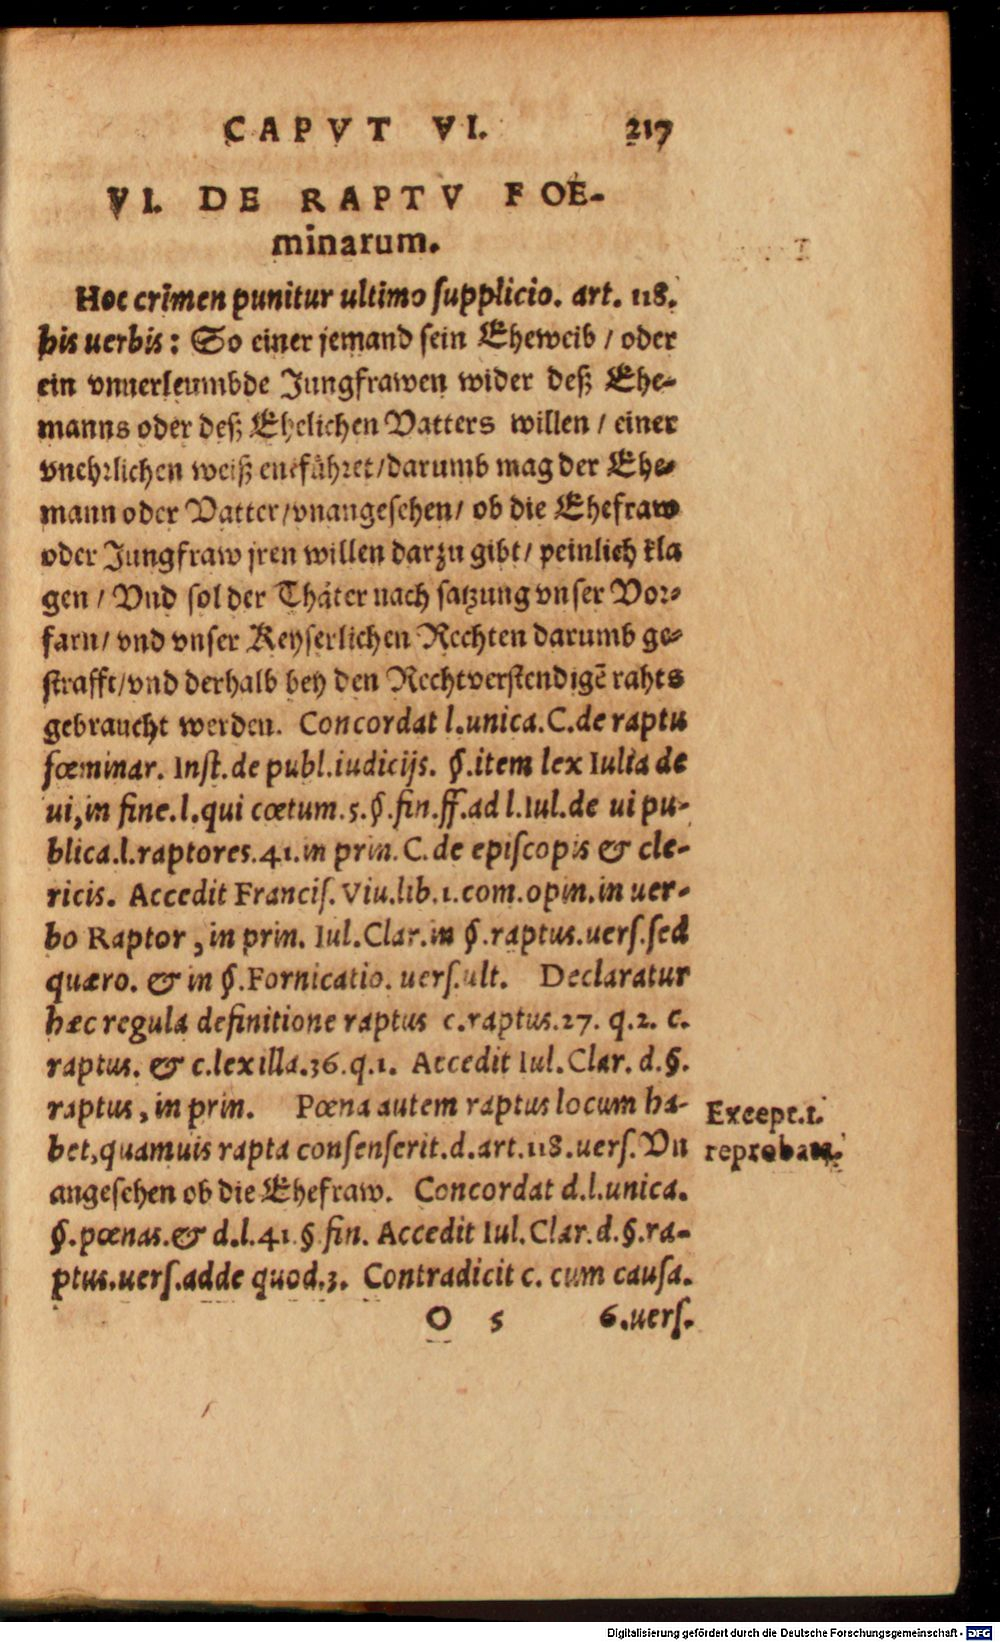 CAPVT VI. 217
VI. DE RAPTV FOE-
minarum.
Hoc crimen punitur ultimo supplicio. art. 118.
his uerbis: So einer jemand sein Eheweib / oder
ein vnuerleumbde Jungfrawen wider deß Ehe-
manns oder deß Ehelichen Vatters willen / einer
vnehrlichen weiß entführet/darumb mag der Ehe-
mann oder Vatter/vnangesehen/ ob die Ehefraw
oder Jungfraw jren willen darzu gibt/ peinlich kla
gen / Vnd sol der Thäter nach satzung vnser Vor-
farn/ vnd vnser Keyserlichen Rechten darumb ge-
strafft/vnd derhalb bey den Rechtverstendigẽ rahts
gebraucht werden. Concordat l.unica.C.de raptu
fœminar. Inst.de publ.iudicijs. §.item lex Iulia de
ui,in fine.l.qui cœtum.5.§.fin.ff.ad l.Iul.de ui pu-
blica.l.raptores.41.in prin.C.de episcopis & cle-
ricis. Accedit Francis. Viu.lib.1.com.opin.in uer-
bo Raptor , in prin. Iul.Clar.in §.raptus.uers.sed
quæro. & in §.Fornicatio. uers.ult. Declaratur
hæc regula definitione raptus c.raptus.27. q.2. c.
raptus. & c.lex illa.36.q.1. Accedit Iul.Clar. d.§.
raptus , in prin. Pœna autem raptus locum ha-
bet,quamuis rapta consenserit.d.art.118.uers.Vn
angesehen ob die Ehefraw. Concordat d.l.unica.
§.pœnas.& d.l.41.§.fin. Accedit Iul.Clar.d.§.ra-
ptus.uers.adde quod.3. Contradicit c. cum causa.
O 5 6.uers.
Except.1.
reprobata.
Digitalisierung gefördert durch die Deutsche Forschungsgemeinschaft - DFG